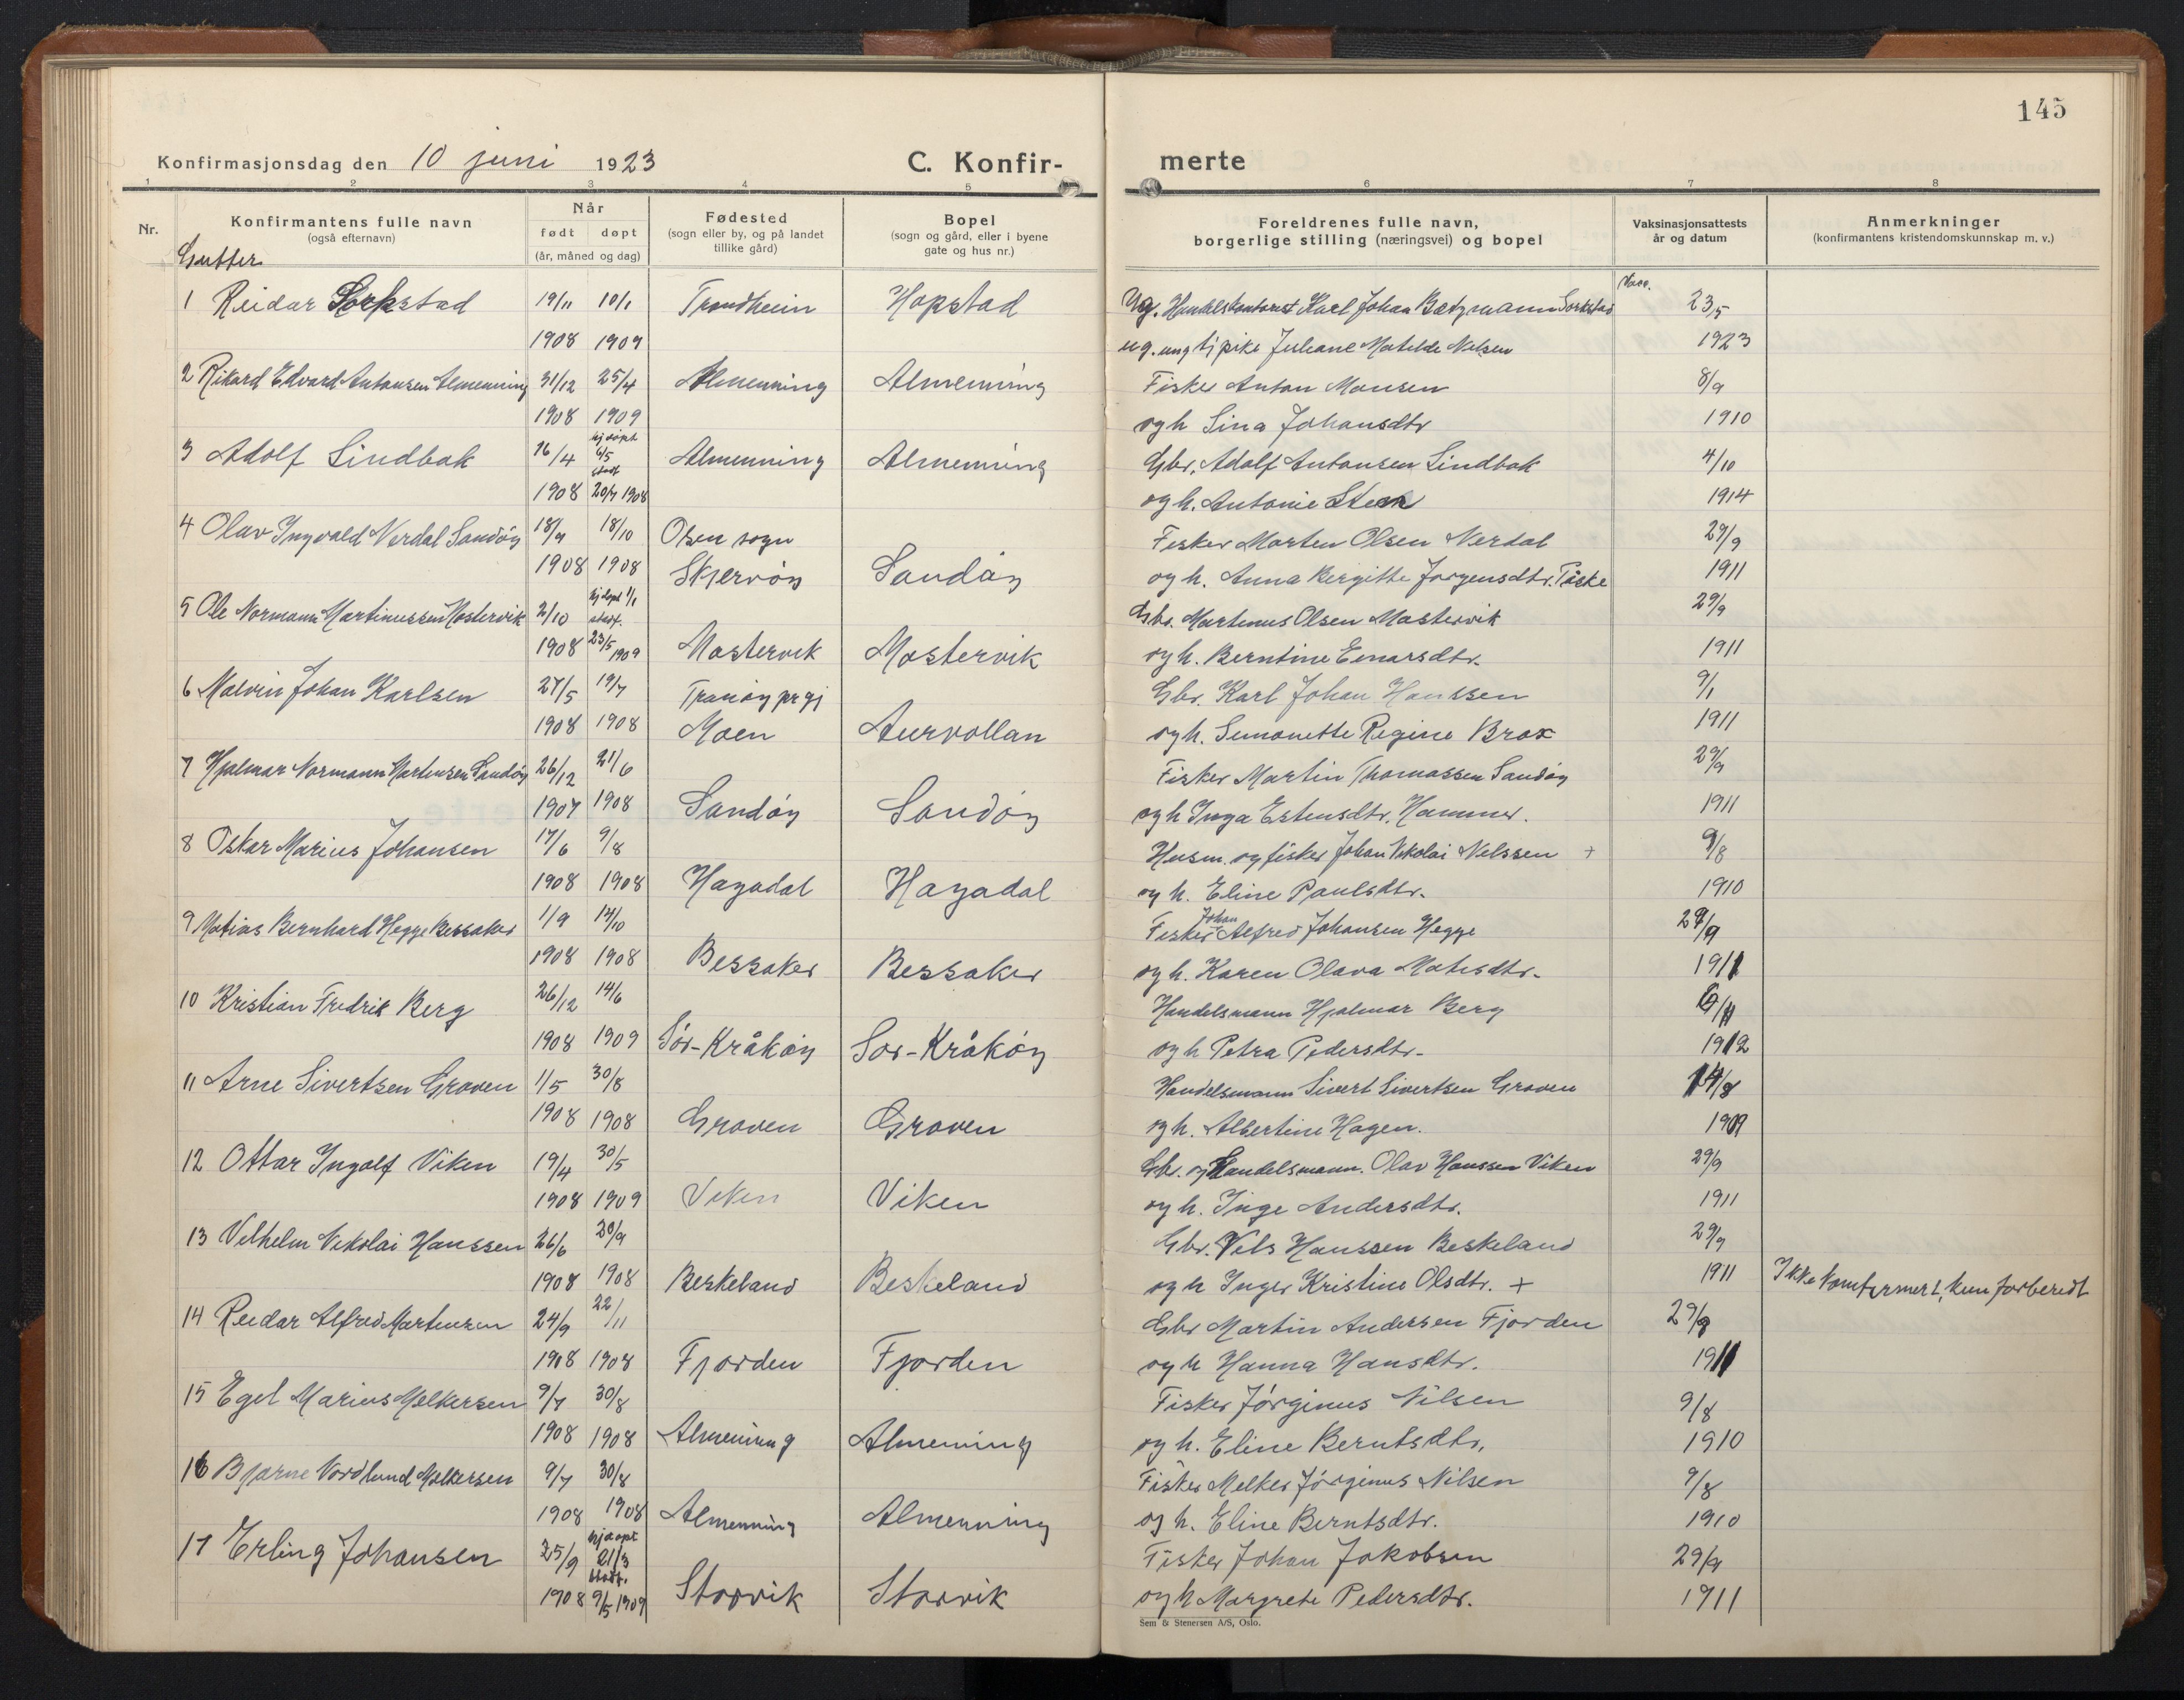 145
Konfirmasjonsdag den 10 juni 1923
C. Konfir-
merte
1 2 3 4 5 6 7 8
Nr.
Konfirmantens fulle navn
(også efternavn)
Når
født døpt
(år, måned og dag)
Fødested
(sogn eller by, og på landet
tillike gård)
Bopel
(sogn og gård, eller i byene
gate og hus nr.)
Foreldrenes fulle navn,
borgerlige stilling (næringsvei) og bopel
Vaksinasjonsattests
år og datum
Anmerkninger
(konfirmantens kristendomskunnskap m. v.)
Gutter
Vacc.
1 Reidar Sorkstad 19/11 10/1 Trondheim Hopstad Ug. Handelskontorist Karl Johan Bætzmann Sorkstad 23/5
1908 1909 ug. ung tj pike Juliane Matilde Nelsen 1923
2 Rikard Edvard Antonsen Almenning 31/12 25/4 Almenning Almenning Fisker Anton Monsen 8/9
1908 1909 og h Sina Johansdtr 1910
3 Adolf Lindbak 16/4 hj døpt 6/5 stadf. Almenning Almenning Gbr. Adolf Antonsen Lindbak 4/10
1908 20/7 1908 og h. Antonie Steen 1914
4 Olav Ingvald Nerdal Sandöy 18/9 18/10 Olsen sogn Fisker Morten Olsen Nerdal 29/9
1908 1908 Skjervöy Sandöy og h. Anna Bergitte Jørgensdtr. Tiske 1911
5 Ole Normann Martinussen Mostervik 2/10 hj døpt 1/1 stadf. Gbr. Martinus Olsen Mostervik 29/9
1908 23/5 1909 Mostervik Mostervik og h. Berntine Einarsdtr. 1911
6 Malvin Johan Karlsen 27/5 19/7 Tranöy prgj Gbr. Karl Johan Hanssen 9/1
1908 1908 Moen Aurvollan og h. Simonette Regine Brox 1911
7 Hjalmar Normann Martensen Sandöy 26/12 21/6 Fisker Martin Thomassen Sandöy 29/9
1907 1908 Sandöy Sandöy og h Inga Estensdtr. Hammer. 1911
8 Oskar Marius Johansen 17/6 9/8 Husm. og fisker Johan Nikolai Nelssen + 9/8
1908 1908 Hagadal Hagadal og h. Eline Paulsdtr. 1910
9 Matias Bernhard Hegge Bessaker 1/9 14/10 Fisker Johan Alfred Johansen Hegge 29/9
1908 1908 Bessaker Bessaker og h. Karen Olava Matisdtr. 1911
10 Kristian Fredrik Berg 26/12 14/6 Handelsmann Hjalmar Berg
1908 1909 Sör-Kråköy Sör-Kråköy og h Petra Pedersdtr. 1912
11 Arne Sivertsen Groven 1/5 30/8 Handelsmann Sivert Sivertsen Groven 14/8
1908 1908 Groven Groven og h. Albertine Hagen. 1909
12 Ottar Ingolf Viken 19/4 30/5 Gbr. og Handelsmann. Olav Hanssen Viken 29/9
1908 1909 Viken Viken og h. Inge Andersdtr. 1911
13 Vilhelm Nikolai Hanssen 26/6 20/9 Gbr. Nils Hanssen Beskeland 29/9
1908 1908 Beskeland Beskeland og h Inger Kristine Olsdtr. + 1911 Ikke komfirmert, kun forberedt
14 Reidar Alfred Martensen 24/9 22/11 Gbr Martin Andersen Fjorden 29/9
1908 1908 Fjorden Fjorden og h Hanna Hansdtr. 1911
15 Egil Marius Melkersen 9/7 30/8 Fisker Jörginus Nilsen 9/8
1908 1908 Almenning Almenning og h. Eline Berntsdtr. 1910
16 Bjarne Nordlund Melkersen 9/7 30/8 Fisker Melker Jörginus Nilsen 9/8
1908 1908 Almenning Almenning og h. Eline Berntsdtr. 1910
17 Erling Johansen 25/9 hjdöpt 21/3 stadf. Fisker Johan Jakobsen 29/9
1908 9/5 1909 Storvik Storvik og h Margrete Pedersdtr. 1911
Sem & Stenersen A/S, Oslo.